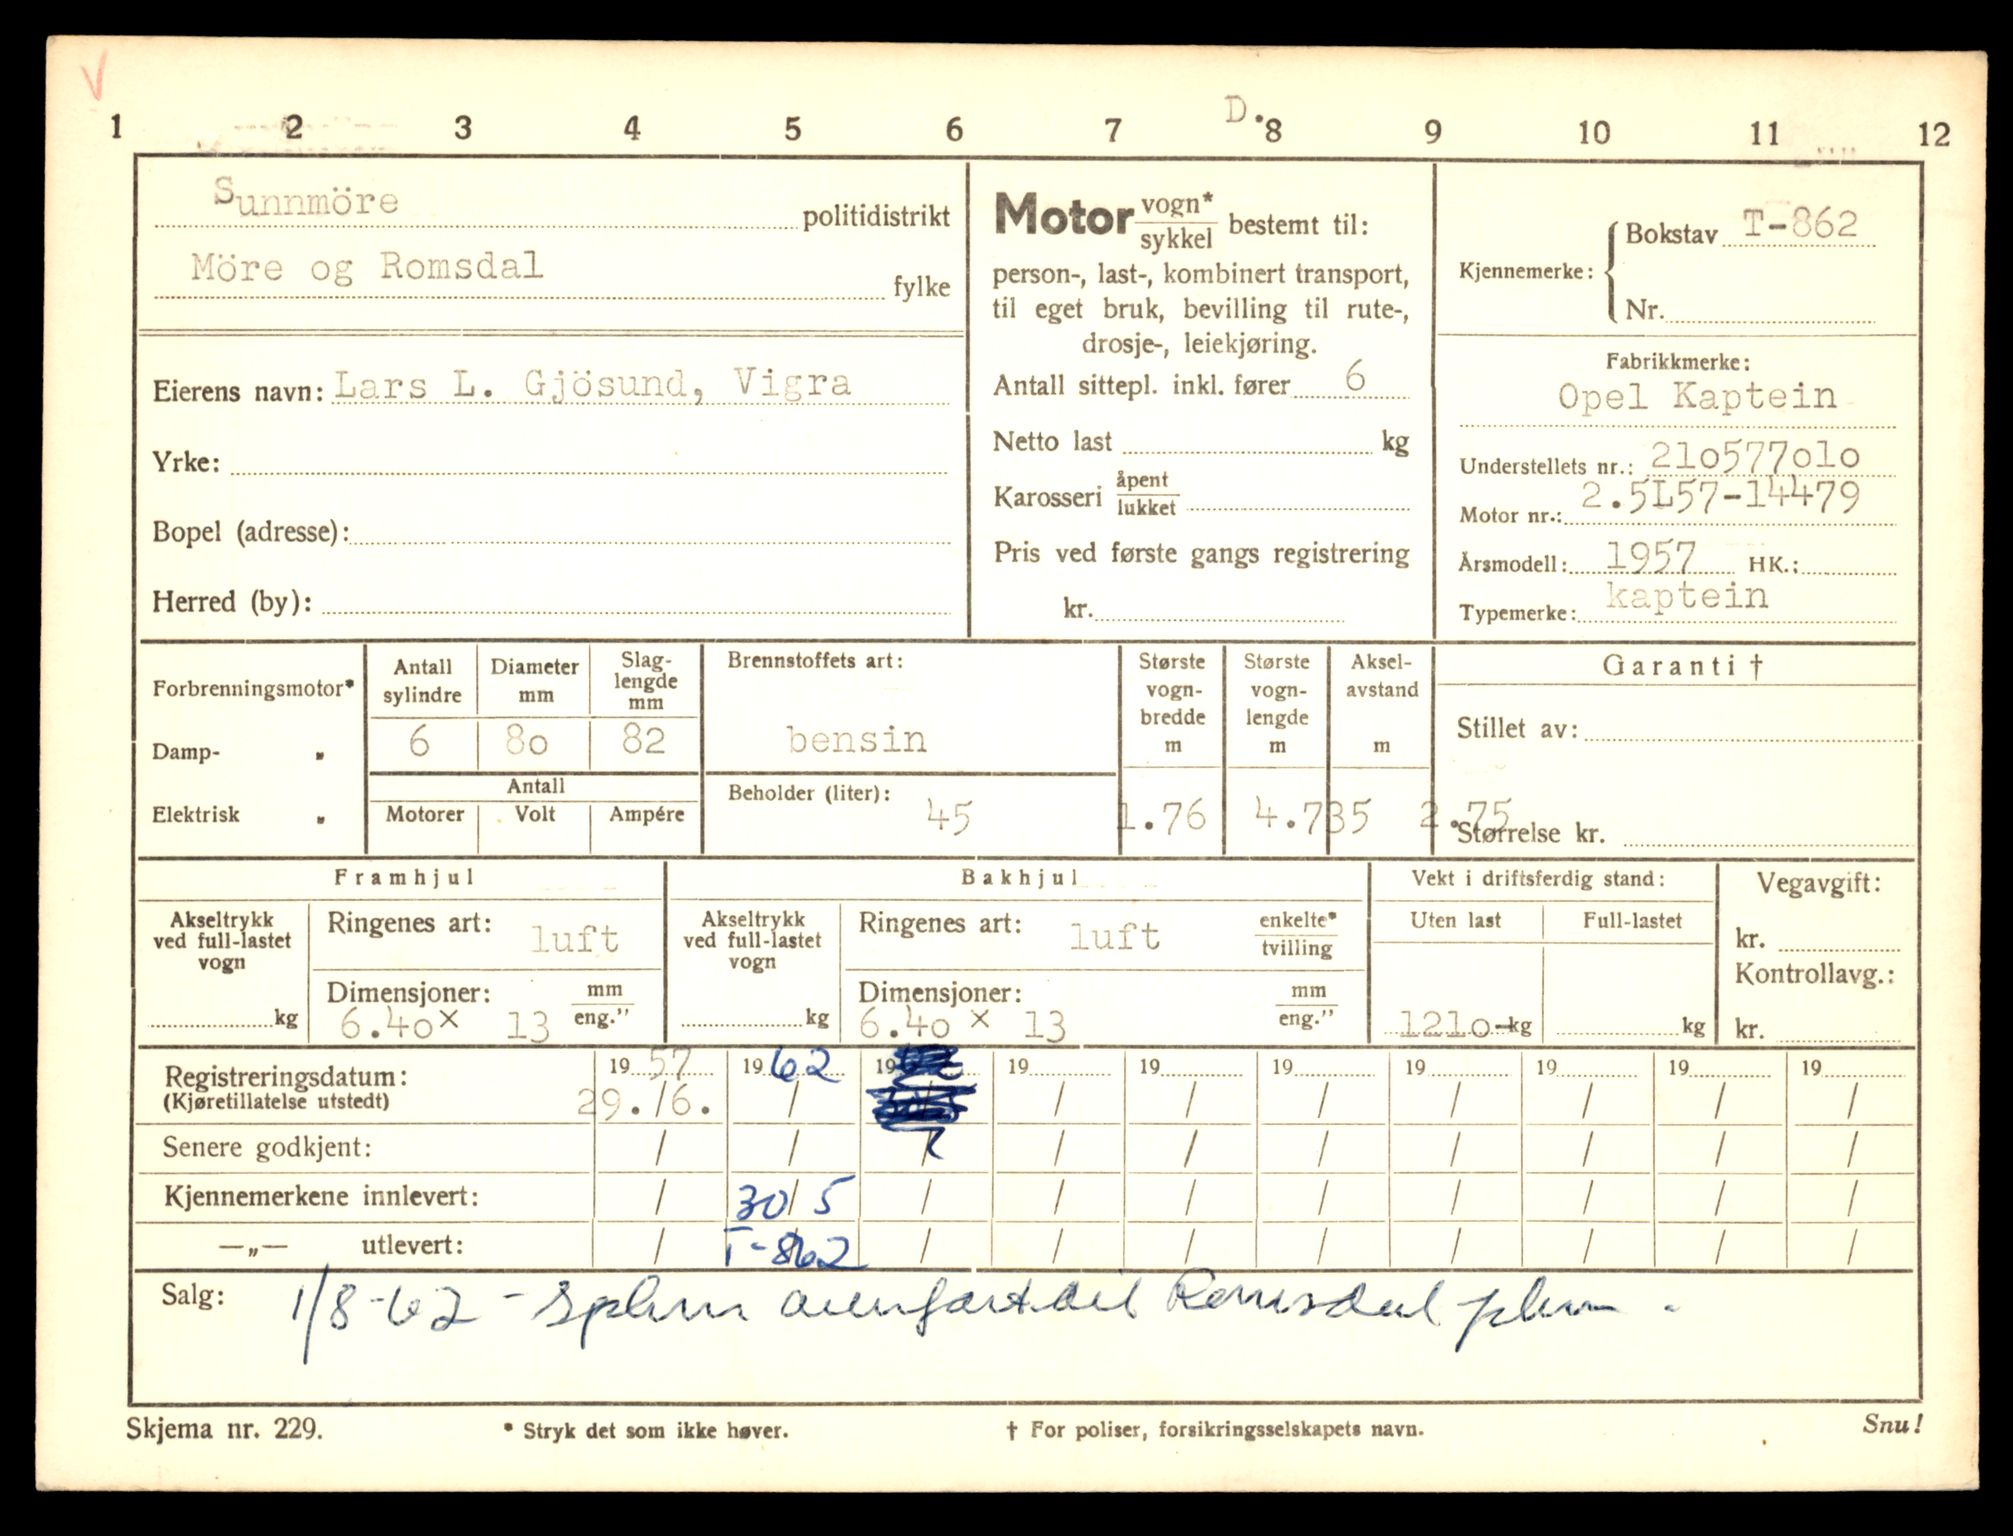 V
D.
1 2 3 4 5 6 7 8 9 10 11 12
Sunnmöre politidistrikt
Möre og Romsdal fylke
Eierens navn: Lars L. Gjösund, Vigra
Yrke:
Bopel (adresse):
Herred (by):
Motor vogn*
sykkel bestemt til:
person-, last-, kombinert transport,
til eget bruk, bevilling til rute-,
drosje-, leiekjøring.
Antall sittepl. inkl. fører 6
Netto last kg
Karosseri åpent
lukket
Pris ved første gangs registrering
kr.
Kjennemerke: Bokstav T-862
Nr.
Fabrikkmerke:
Opel Kaptein
Understellets nr.: 21o577o1o
Motor nr.: 2.5L57-14479
Årsmodell: 1957 HK.:
Typemerke: kaptein
Forbrenningsmotor*
Damp- „
Elektrisk „
Antall
sylindre
6
Diameter
mm
8o
Slag-
lengde
mm
82
Antall
Motorer Volt Ampére
Brennstoffets art:
bensin
Beholder (liter): 45
Største
vogn-
bredde
m
1.76
Største
vogn-
lengde
m
4.735
Aksel-
avstand
m
2.75
Garanti †
Stillet av:
Størrelse kr.
Framhjul
Akseltrykk
ved full-lastet
vogn
kg
Ringenes art: luft
Dimensjoner: mm
6.4o x 13 eng."
Bakhjul
Akseltrykk
ved full-lastet
vogn
kg
Ringenes art: luft enkelte*
tvilling
Dimensjoner: mm
6.4o x 13 eng."
Vekt i driftsferdig stand:
Uten last Full-lastet
121o- kg kg
Vegavgift:
kr.
Kontrollavg.:
kr.
Registreringsdatum: 19 57 19 62 19 19 19 19 19 19 19 19
(Kjøretillatelse utstedt) 29./6. / / / / / / / /
Senere godkjent: / / / / / / / / / /
Kjennemerkene innlevert: / 30/5 / / / / / / / /
—„— utlevert: / T-862 / / / / / / / /
Salg: 1/8-62 - Romsdal
Skjema nr. 229. * Stryk det som ikke høver. † For poliser, forsikringsselskapets navn. Snu!